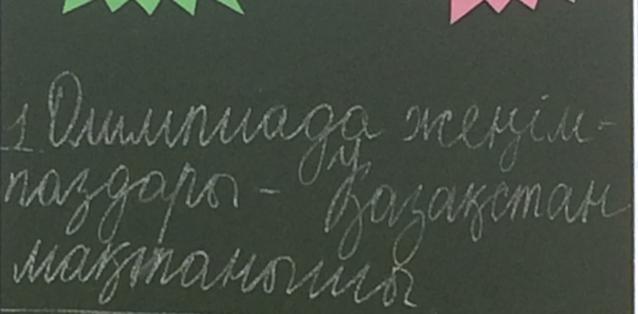 1 Олимпиада жеңім-
паздары - Қазақстан
мақтанышы